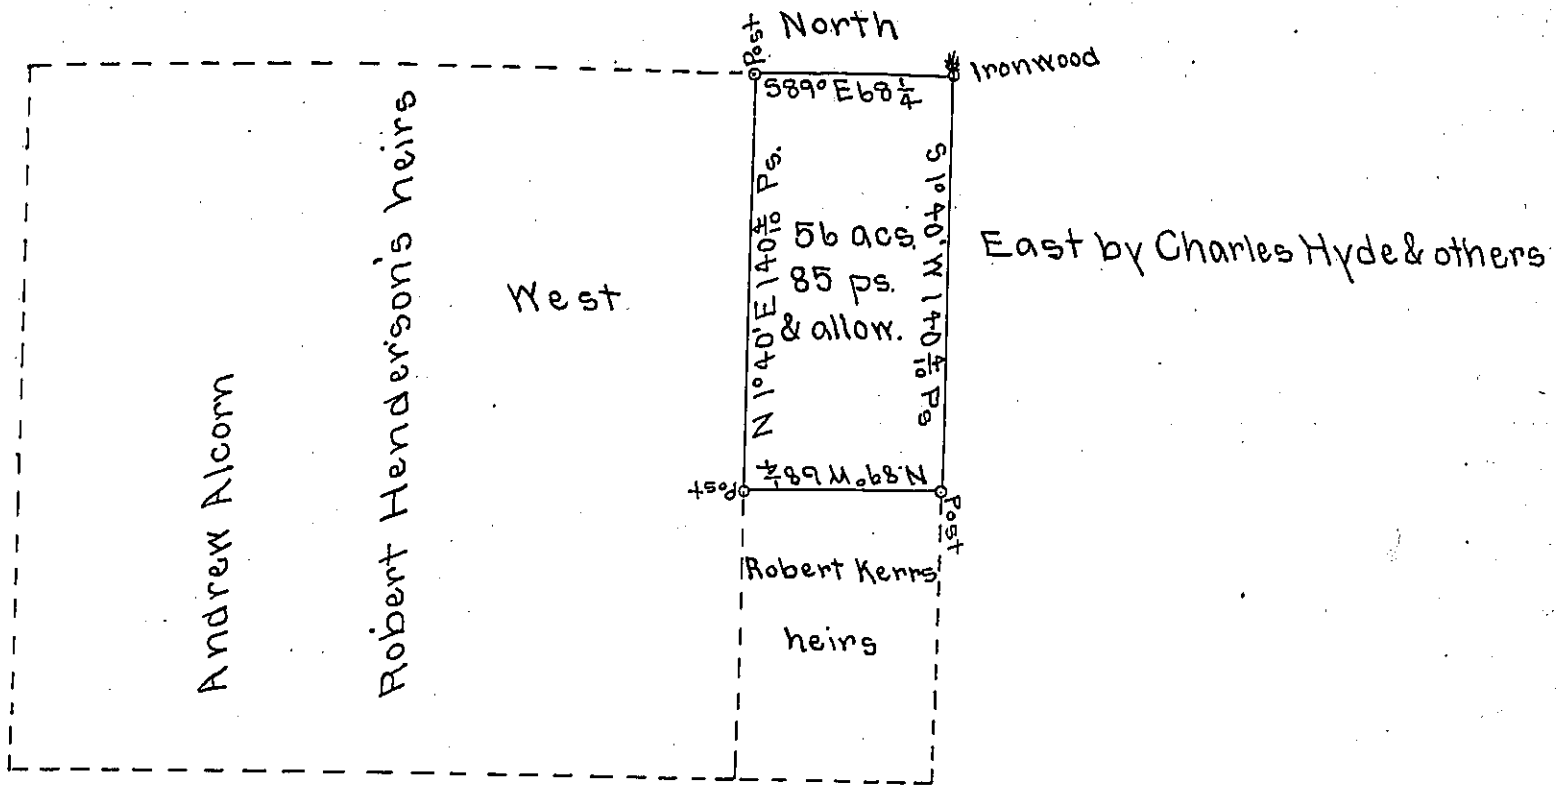 North
Post
Ironwood
S89°E68¼
Andrew Alcorn
Robert Henderson's heirs
West
N 1°40'E 140 4/10 Ps.
56 acs.
85 ps.
& allow.
S 1°40'W 140 4/10 Ps
East by Charles Hyde & others
N.89°W 68¼
Post
Post
Robert Kerrs
heirs